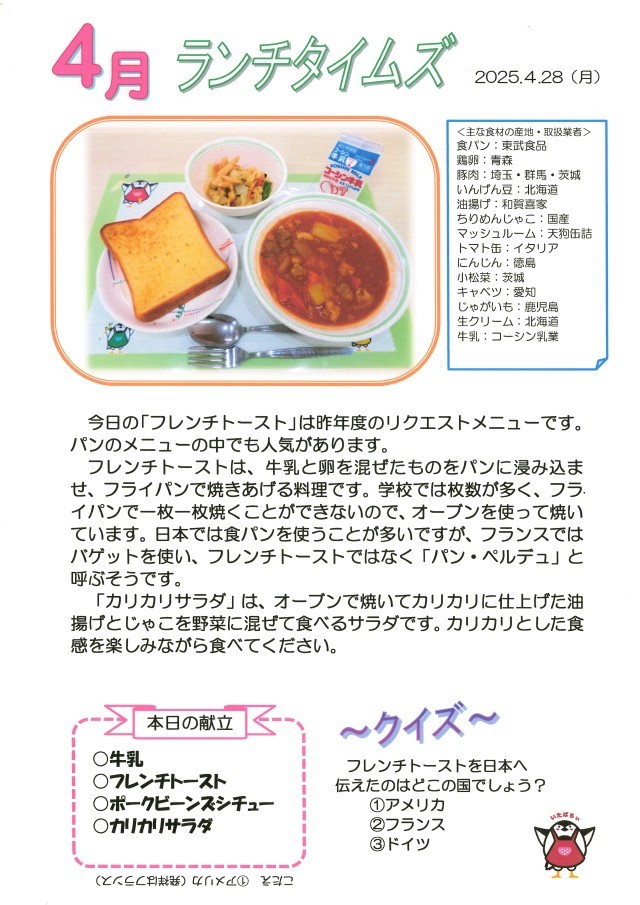 4月 ランチタイムズ 2025.4.28（月）
＜主な食材の産地・取扱業者＞
食パン：東武食品
鶏卵：青森
豚肉：埼玉・群馬・茨城
いんげん豆：北海道
油揚げ：和賀喜家
ちりめんじゃこ：国産
マッシュルーム：天狗缶詰
トマト缶：イタリア
にんじん：徳島
小松菜：茨城
キャベツ：愛知
じゃがいも：鹿児島
生クリーム：北海道
牛乳：コーシン乳業
牛乳
コーシン牛乳
今日の「フレンチトースト」は昨年度のリクエストメニューです。
パンのメニューの中でも人気があります。
フレンチトーストは、牛乳と卵を混ぜたものをパンに浸み込ま
せ、フライパンで焼きあげる料理です。学校では枚数が多く、フラ
イパンで一枚一枚焼くことができないので、オーブンを使って焼い
ています。日本では食パンを使うことが多いですが、フランスでは
バゲットを使い、フレンチトーストではなく「パン・ペルデュ」と
呼ぶそうです。
「カリカリサラダ」は、オーブンで焼いてカリカリに仕上げた油
揚げとじゃこを野菜に混ぜて食べるサラダです。カリカリとした食
感を楽しみながら食べてください。
本日の献立
○牛乳
○フレンチトースト
○ポークビーンズシチュー
○カリカリサラダ
～クイズ～
フレンチトーストを日本へ
伝えたのはどこの国でしょう？
①アメリカ
②フランス
③ドイツ
いたばるぃ
こたえ ①アメリカ（発祥はフランス）